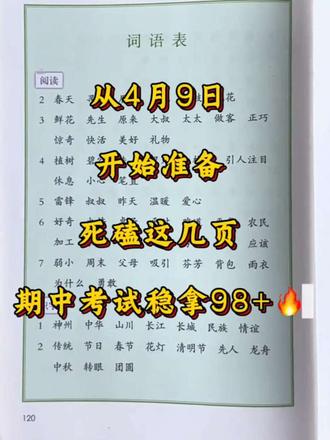 词语表
阅读
从4月9日
2 春天 花
3 鲜花 先生 原来 大叔 太太 做客 正巧
惊奇 快活 美好 礼物
开始准备
4 植树 引人注目
休息 小心 笔直
5 雷锋 叔叔 昨天 温暖 爱心
6 好奇 农民
死磕这几页
加工 应该
7 弱小 周末 父母 吸引 芬芳 背包 雨衣
为什么 勇敢
期中考试稳拿98+🔥
1 神州 中华 山川 长江 长城 民族 情谊
2 传统 节日 春节 花灯 清明节 先人 龙舟
中秋 转眼 团圆
120